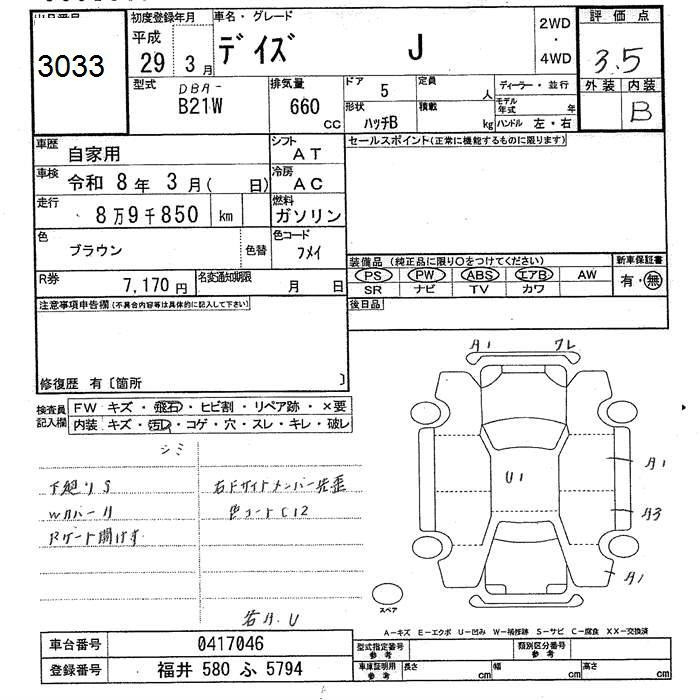 出品番号 初度登録年月 車名・グレード 2WD・4WD 評価点
3033 平成 29年 3月 デイズ J 3.5
型式 DBA- B21W 排気量 660 CC ドア 5 定員 人 ディーラー・並行 外装 内装
形状 ハッチB 積載 kg モデル年式 年 ハンドル 左・右 B
車歴 自家用 シフト AT セールスポイント(正常に機能するものに限ります)
車検 令和 8年 3月( 日) 冷房 AC
走行 8万9千850 km 燃料 ガソリン
色 ブラウン 色替 色コード フメイ
装備品 (純正品に限り〇をつけてください) 新車保証書
PS PW ABS エアB AW 有・無
SR ナビ TV カワ
R券 7,170円 名変通知期限 月 日
注意事項申告欄(不具合内容等は具体的に記入して下さい) 後日品
修復歴 有〔箇所 〕
検査員記入欄 FW キズ・飛石・ヒビ割・リペア跡・×要
内装 キズ・汚レ・コゲ・穴・スレ・キレ・破レ
シミ
下廻りS
Wカバーリ
Rゲート開けキ
色コードC12
A1 フレ
U1
A1
A3
A1
スペア
A-キズ E-エクボ U-凹み W-補修跡 S-サビ C-腐食 XX-交換済
車台番号 0417046 型式指定番号 参考 類別区分番号 参考
登録番号 福井 580 ふ 5794 車庫証明用 参考 長さ cm 幅 cm 高さ cm